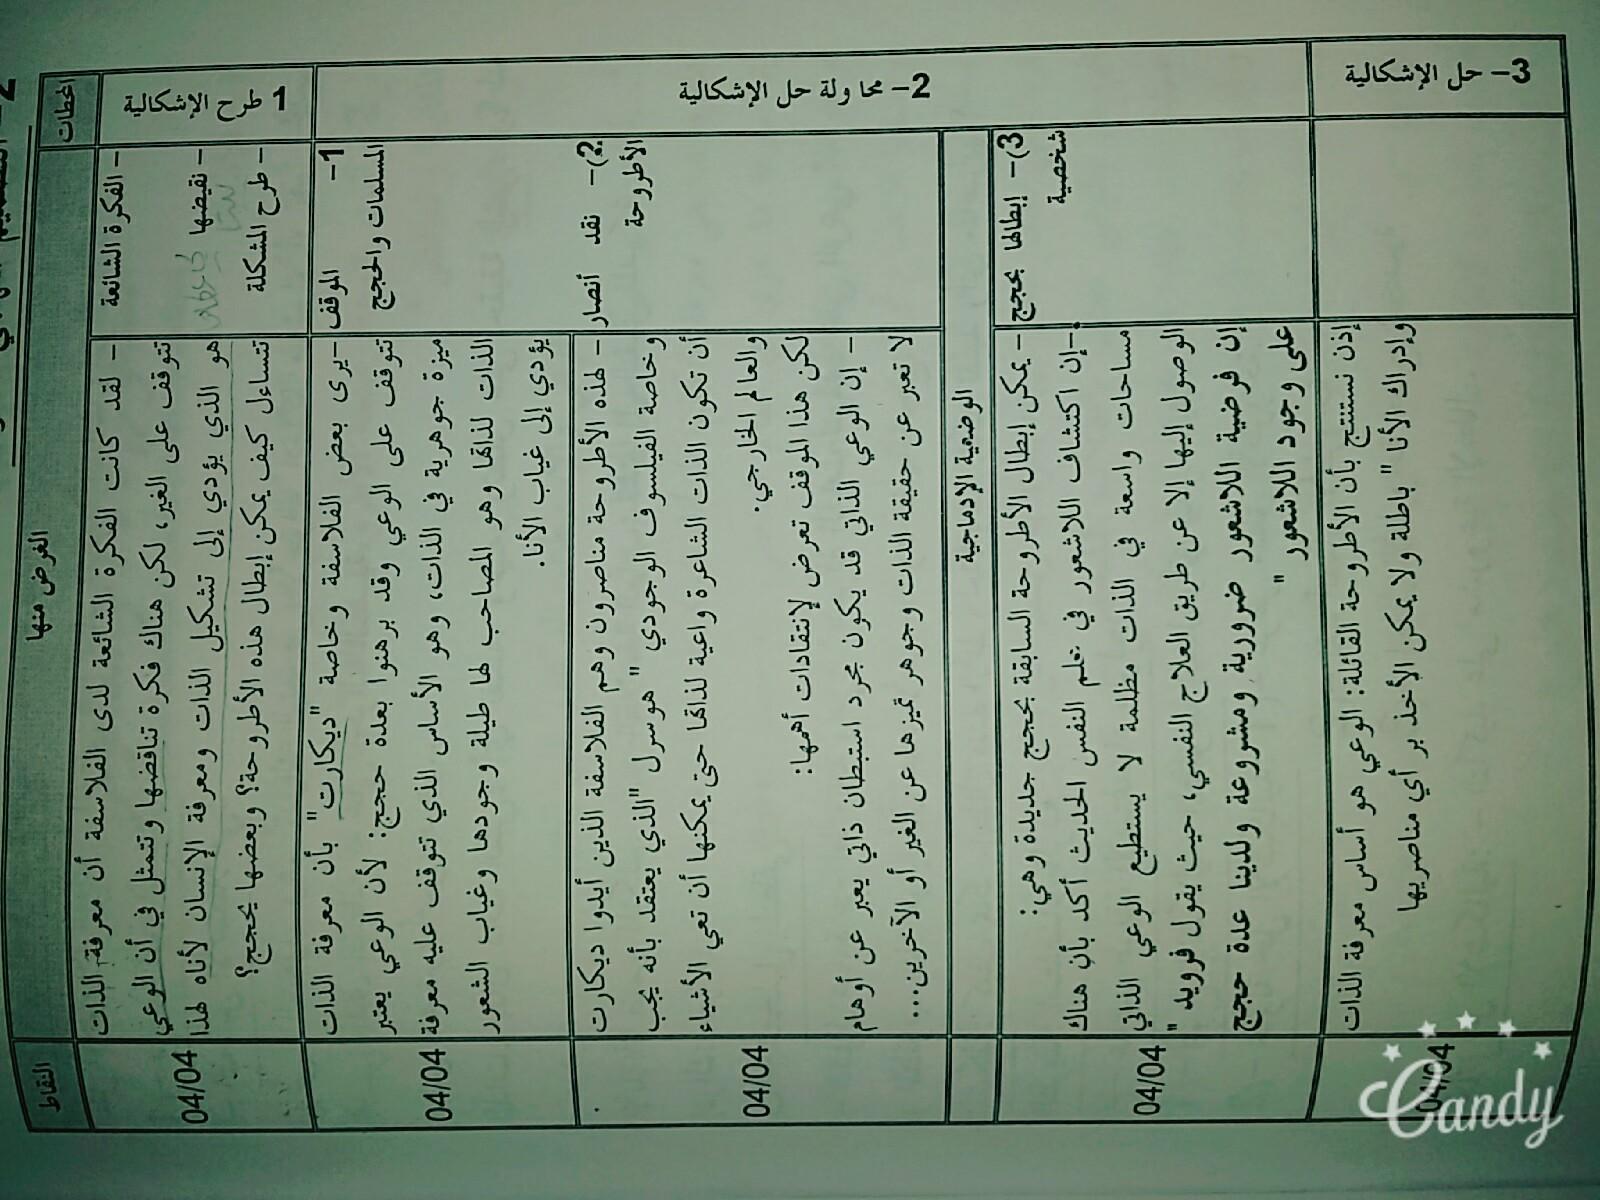 المحطات
الغرض منها
النقاط
1 طرح الإشكالية
- الفكرة الشائعة
- نقيضها
- طرح المشكلة
- لقد كانت الفكرة الشائعة لدى الفلاسفة أن معرفة الذات
تتوقف على الغير، لكن هناك فكرة تناقضها وتتمثل في أن الوعي
هو الذي يؤدي إلى تشكيل الذات ومعرفة الإنسان لأناه لهذا
تتساءل كيف يمكن إبطال هذه الأطروحة؟ وبعضها بحجج؟
04/04
2- محاولة حل الإشكالية
1- الموقف
المسلمات والحجج
-يرى بعض الفلاسفة وخاصة "ديكارت" بأن معرفة الذات
تتوقف على الوعي وقد برهنوا بعدة حجج: لأن الوعي يعتبر
ميزة جوهرية في الذات، وهو الأساس الذي تتوقف عليه معرفة
الذات لذاتها وهو المصاحب لها طيلة وجودها وغياب الشعور
يؤدي إلى غياب الأنا.
04/04
2)- نقد أنصار
الأطروحة
- لهذه الأطروحة مناصرون وهم الفلاسفة الذين أيدوا ديكارت
وخاصة الفيلسوف الوجودي "هوسرل "الذي يعتقد بأنه يجب
أن تكون الذات الشاعرة واعية لذاتها حتى يمكنها أن تعي الأشياء
والعالم الخارجي.
لكن هذا الموقف تعرض لإنتقادات أهمها:
- إن الوعي الذاتي قد يكون مجرد استبطان ذاتي يعبر عن أوهام
لا تعبر عن حقيقة الذات وجوهر تميزها عن الغير أو الآخرين...
04/04
الوضعية الإدماجية
3)- إبطالها بحجج
شخصية
- يمكن إبطال الأطروحة السابقة بحجج جديدة وهي:
-إن اكتشاف اللاشعور في علم النفس الحديث أكد بأن هناك
مساحات واسعة في الذات مظلمة لا يستطيع الوعي الذاتي
الوصول إليها إلا عن طريق العلاج النفسي، حيث يقول فرويد "
إن فرضية اللاشعور ضرورية ومشروعة ولدينا عدة حجج
على وجود اللاشعور "
04/04
3- حل الإشكالية
إذن نستنتج بأن الأطروحة القائلة: الوعي هو أساس معرفة الذات
وإدراك الأنا " باطلة ولا يمكن الأخذ برأي مناصريها
04/04
Candy